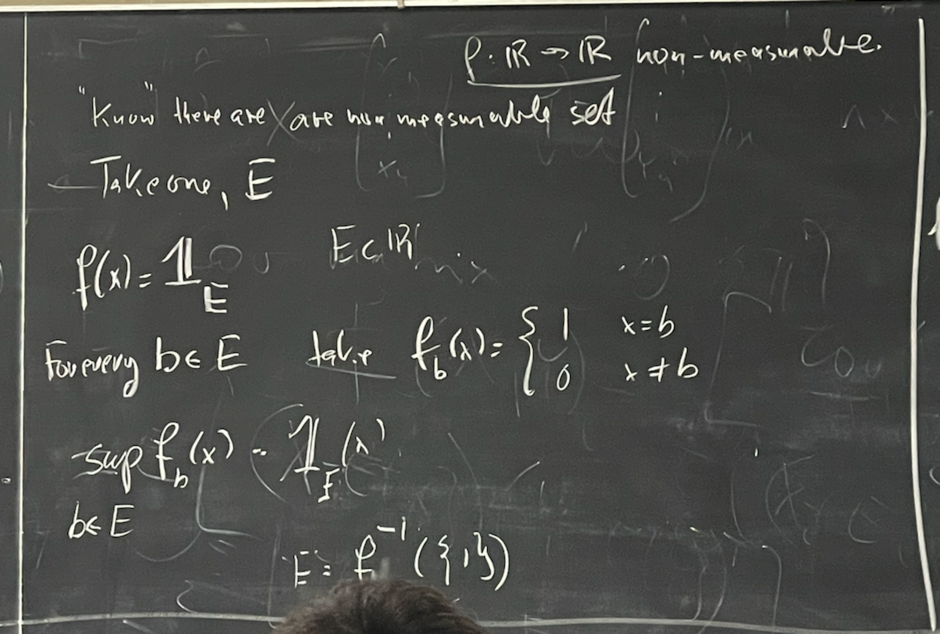 f: ℝ → ℝ non-measurable.
"Know" there are are non measurable set
Take one, E
f(x) = 𝟙_E E⊂ℝ
For every b∈E take f_b(x) = { 1 x=b
0 x≠b
sup f_b(x) = 𝟙_E(x)
b∈E
E = f⁻¹({1})